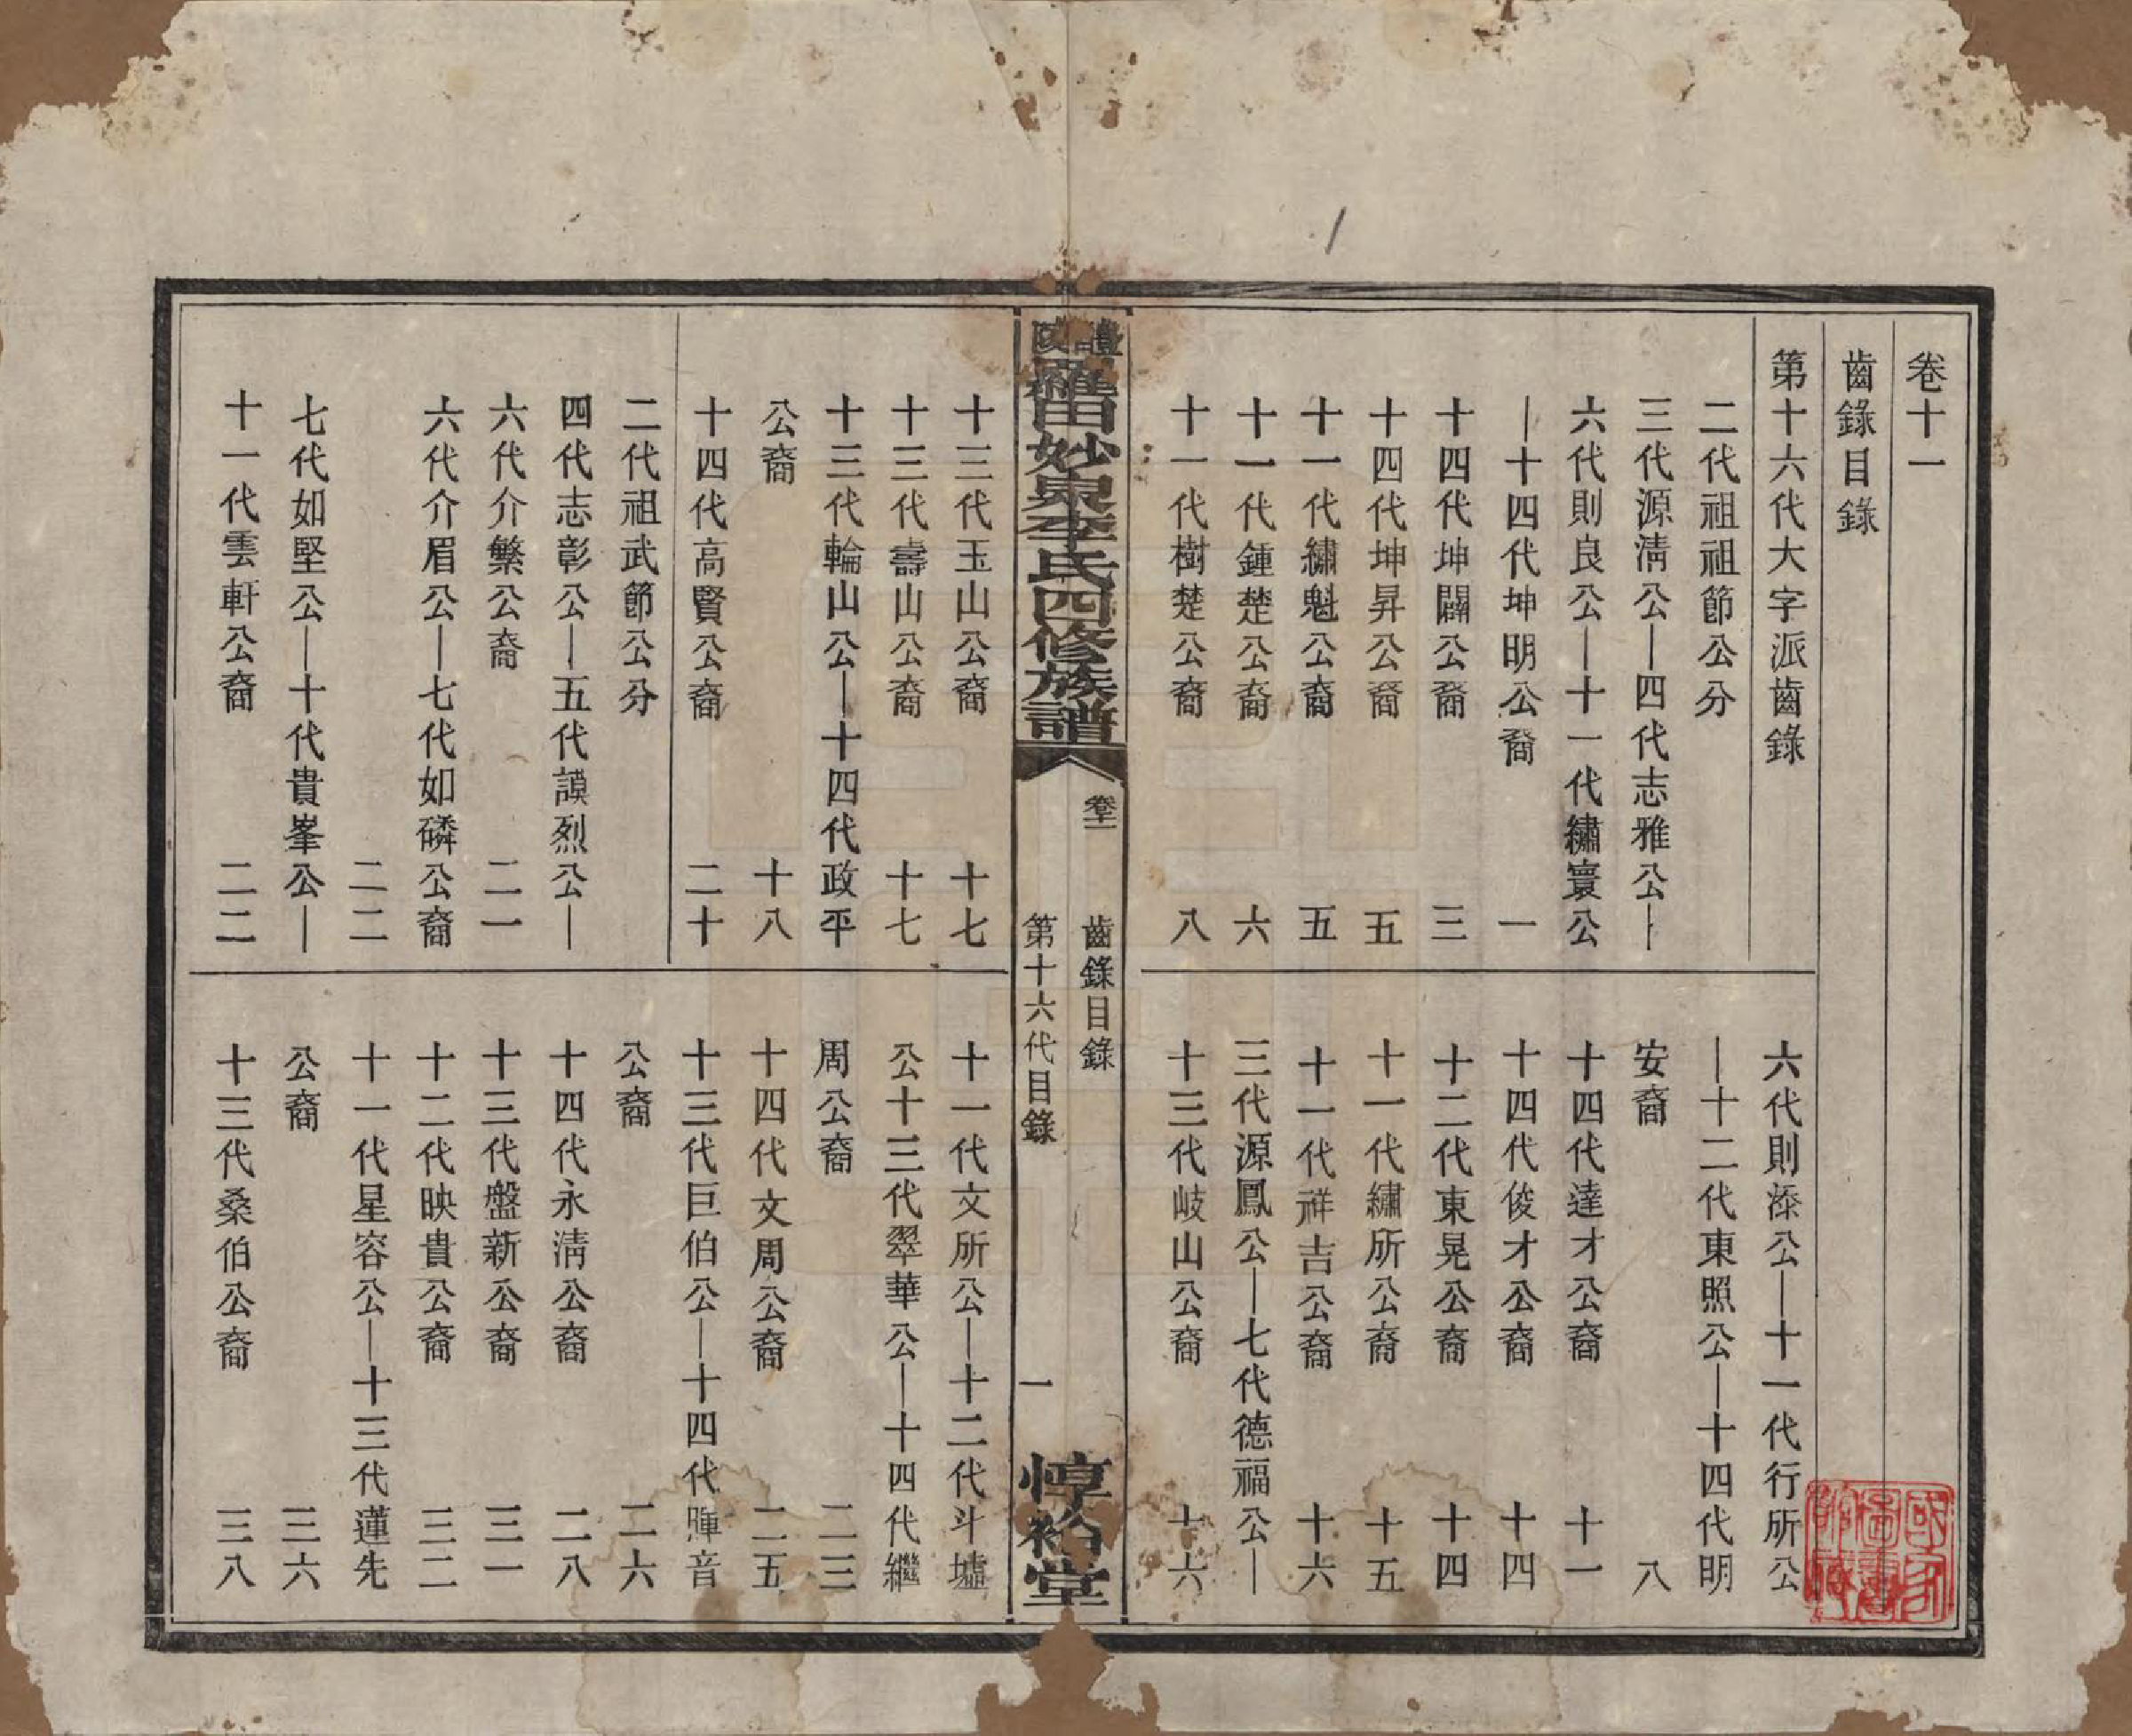 卷十一
齒錄目錄
第十六代大字派齒錄
二代祖祖節公分
三代源淸公—四代志雅公—
六代則良公—十一代繡寰公
—十四代坤明公裔　一
十四代坤闢公裔　三
十四代坤昇公裔　五
十一代繡魁公裔　五
十一代鍾楚公裔　六
十一代樹楚公裔　八
六代則漆公—十一代行所公
—十二代東照公—十四代明
安裔　八
十四代達才公裔　十一
十四代俊才公裔　十四
十二代東晃公裔　十四
十一代繡所公裔　十五
十一代祥吉公裔　十六
三代源鳳公—七代德福公—
十三代岐山公裔　十六
醴陵羅田妙泉李氏四修族譜
卷十一
齒錄目錄
第十六代目錄
一
惇裕堂
十三代玉山公裔　十七
十三代壽山公裔　十七
十三代輪山公—十四代政平
公裔　十八
十四代高賢公裔　二十
二代祖武節公分
四代志彰公—五代謨烈公—
六代介繁公裔　二一
六代介眉公—七代如磷公裔
二二
七代如堅公—十代貴峯公—
十一代雲軒公裔　二二
十一代文所公—十二代斗墟
公十三代翠華公—十四代繼
周公裔　二三
十四代文周公裔　二五
十三代巨伯公—十四代暉音
公裔　二六
十四代永淸公裔　二八
十三代盤新公裔　三一
十二代映貴公裔　三二
十一代星容公—十三代蓮先
公裔　三六
十三代桑伯公裔　三八